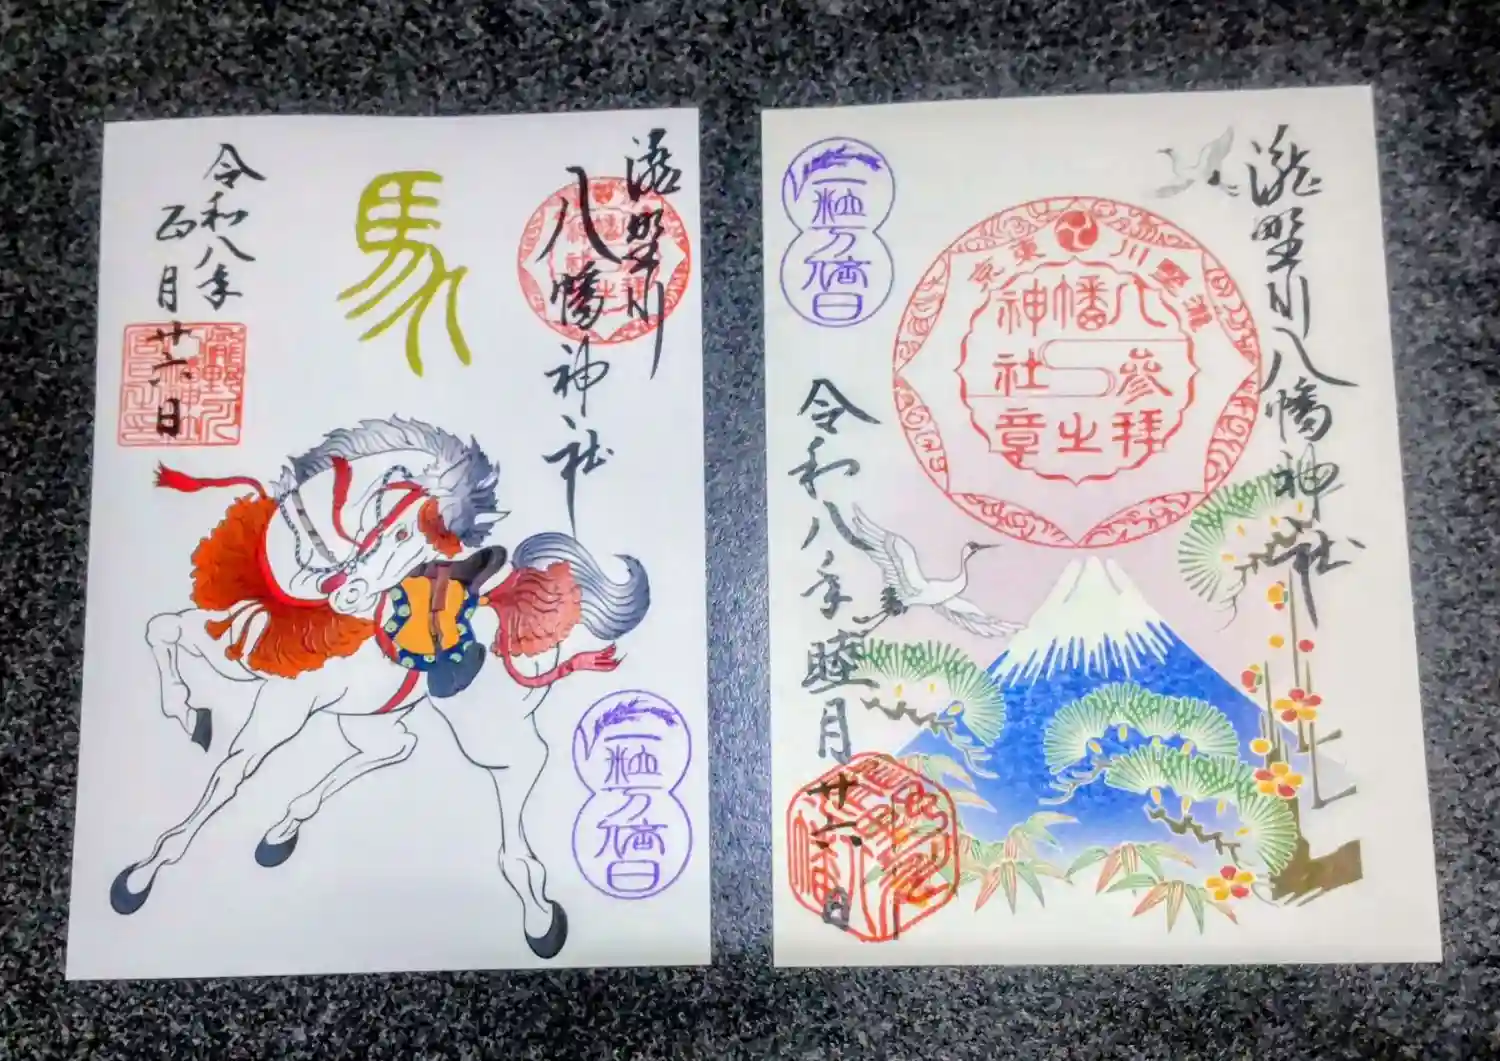 瀧野川
八幡神社
馬
令和八年
正月廿六日
一粒万倍日
瀧野川八幡神社
瀧野川東京
八幡神社
參拝之章
一粒万倍日
令和八年睦月廿六日